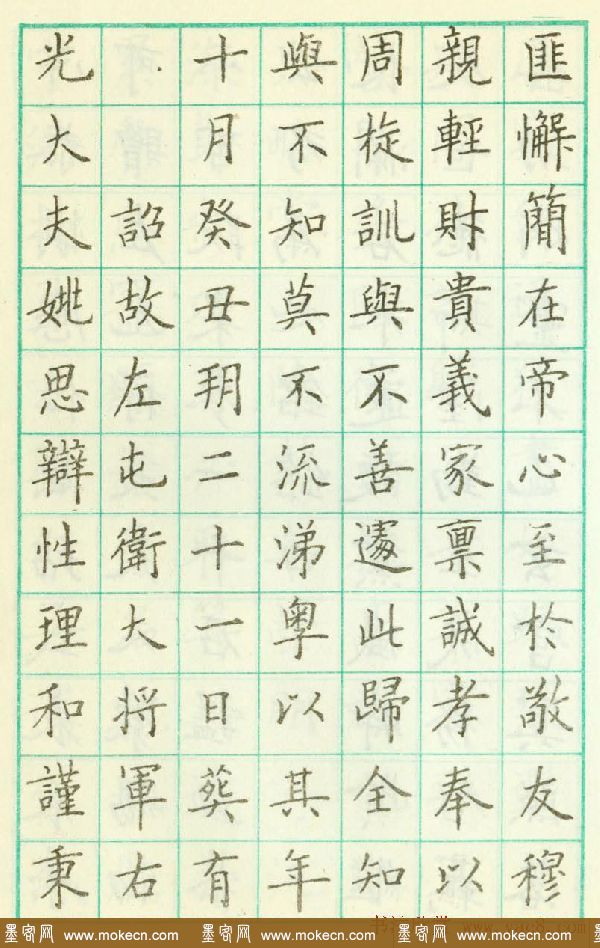 匪懈簡在帝心至於敬友穆
親輕財貴義家稟誠孝奉以
周旋訓與不善遽此歸全知
與不知莫不流涕粤以其年
十月癸丑朔二十一日葬有
詔故左屯衛大将軍右
光大夫姚思辯性理和謹秉
墨客网 www.mokecn.com 墨客网 www.mokecn.com 墨客网 www.mokecn.com